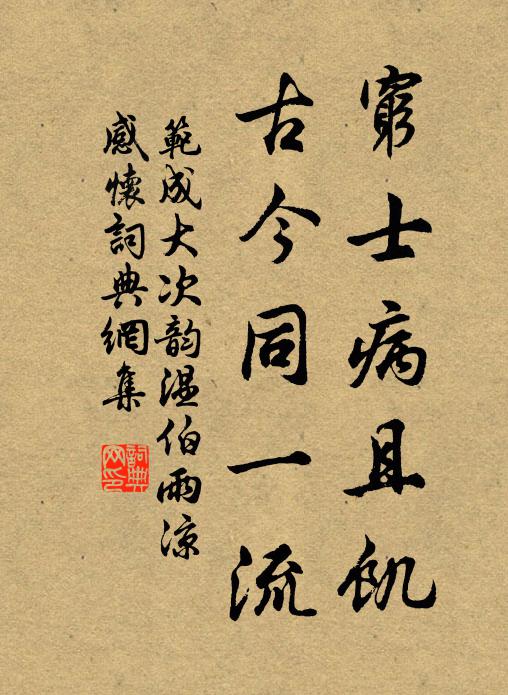 窮士病且飢
古今同一流
範成大次韵温伯雨凉
感懷詞典網集
詞典
网印